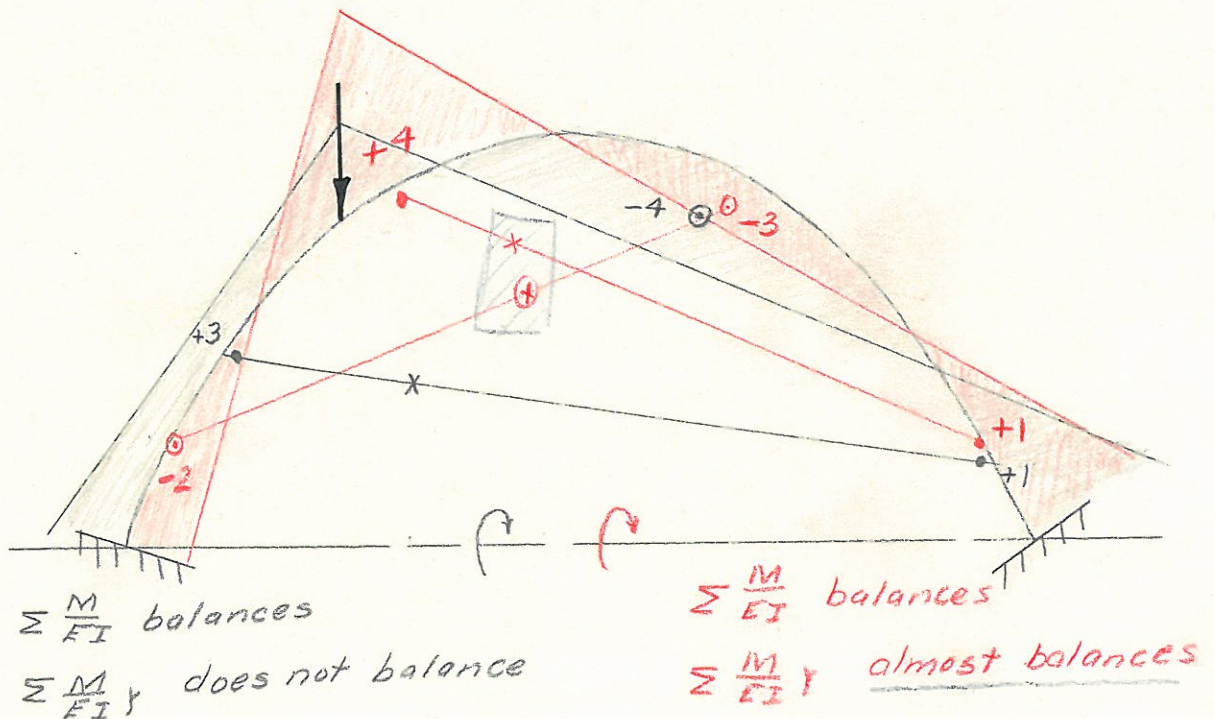 +4
-4
-3
+3
+1
+1
-2
Σ M/EI balances
Σ M/EI y does not balance
Σ M/EI balances
Σ M/EI y almost balances